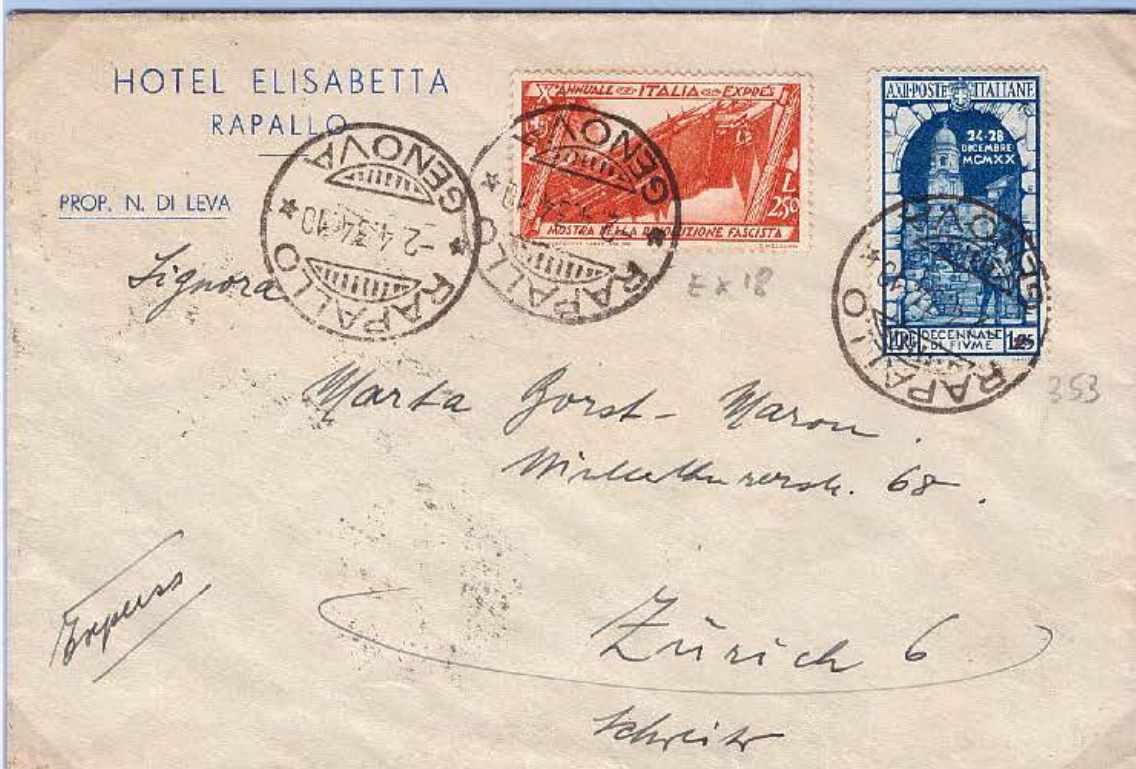 HOTEL ELISABETTA
RAPALLO
PROP. N. DI LEVA
RAPALLO GENOVA
-2.4.34.10
RAPALLO GENOVA
-2.4.34.10
X° ANNUALE ITALIA EXPRES
L 2,50
MOSTRA DELLA RIVOLUZIONE FASCISTA
A.XII-POSTE ITALIANE
24-28
DICEMBRE
MCMXX
LIRE DECENNALE DI FIUME 1,25
RAPALLO
Ex 18
353
Signora
Marta
68.
Express
Zürich 6
Schweiz